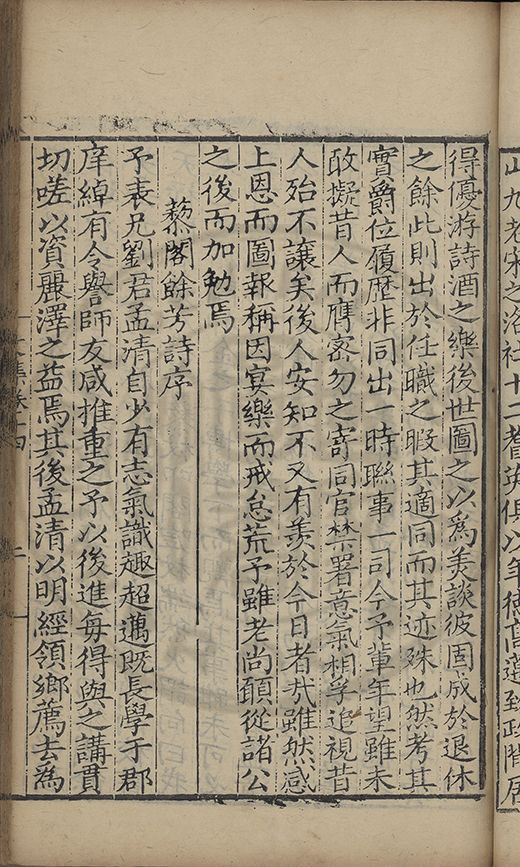 九老宋之洛社十二耆英俱以年德高邁致政閒居
得優游詩酒之樂後世圖之以為美談彼固成於退休
之餘此則出於任職之暇其適同而其迹殊也然考其
實爵位履歷非同出一時聯事一司今予輩年望雖未
敢擬昔人而膺密勿之寄同官禁署意氣相孚追視昔
人殆不讓矣後人安知不又有羨於今日者哉雖然感
上恩而圖報稱因宴樂而戒怠荒予雖老尚願從諸公
之後而加勉焉
藜閣餘芳詩序
予表兄劉君孟清自少有志氣識趣超邁既長學于郡
庠綽有令譽師友咸推重之予以後進每得與之講貫
切嗟以資麗澤之益焉其後孟清以明經領鄉薦去為
文集卷十四
二